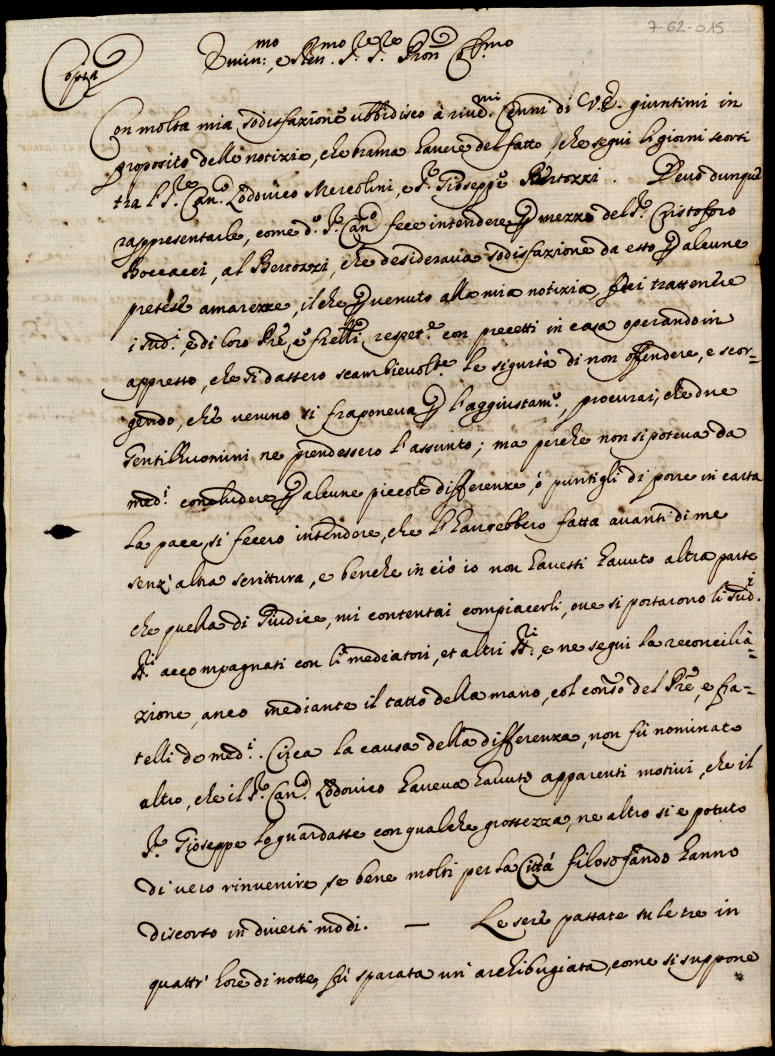 7-62-015
Copia
Emin:mo, e Ren.mo Sre Sre Pron Coll.mo
Con molta mia sodisfazione ubbidisco à riud.mi Cenni di V.E. giuntimi in
proposito delle notizie, che brama havere del fatto, che seguì li giorni scorsi
tra l Sre Can.o Lodovico Mercolini, e Sr Gioseppe Bertozzi. Devo dunque
rappresentarle, come d.o Sr Can.o fece intendere p mezzo del Sr Cristoforo
Boccacci, al Bertozzi, che desiderava sodisfazione da esso p alcune
pretese amarezze, il che p venuto alla mia notizia, feci trattenere
i sud.i e di loro Pre, e frelli, respet.e con precetti in casa operando in
appresso, che si dassero scambievolt.e le sigurtà di non offendere, e scor=
gendo, che veruno si fraponeva p l'aggiustam.o, procurai, che due
Gentilhuomini ne prendessero l'assunto; ma perche non si poteva da
med.i concludere p alcune piccole differenze, ò puntigli di porre in carta
la pace, si fecero intendere, che l'haurebbero fatta avanti di me
senz'altra scrittura, e benche in ciò io non havessi havuto altra parte
che quella di Giudice, mi contentai compiacerli, ove si portarono li sud.i
SS.ri accompagnati con li mediatori, et altri SS.ri, e ne seguì la reconcilia=
zione, anco mediante il tatto della mano, col conso del Pre, e fra=
telli de med.i. Circa la causa della differenza, non fù nominato
altro, che il Sr Can.o Lodovico haveva havuto apparenti motivi, che il
Sr Gioseppe lo guardasse con qualche grossezza, ne altro si è potuto
di vero rinvenire, se bene molti per la Città filosofando hanno
discorso in diversi modi. — Le sere passate su le tre in
quattr'hore di notte, fù sparata un'archibugiata, come si suppone